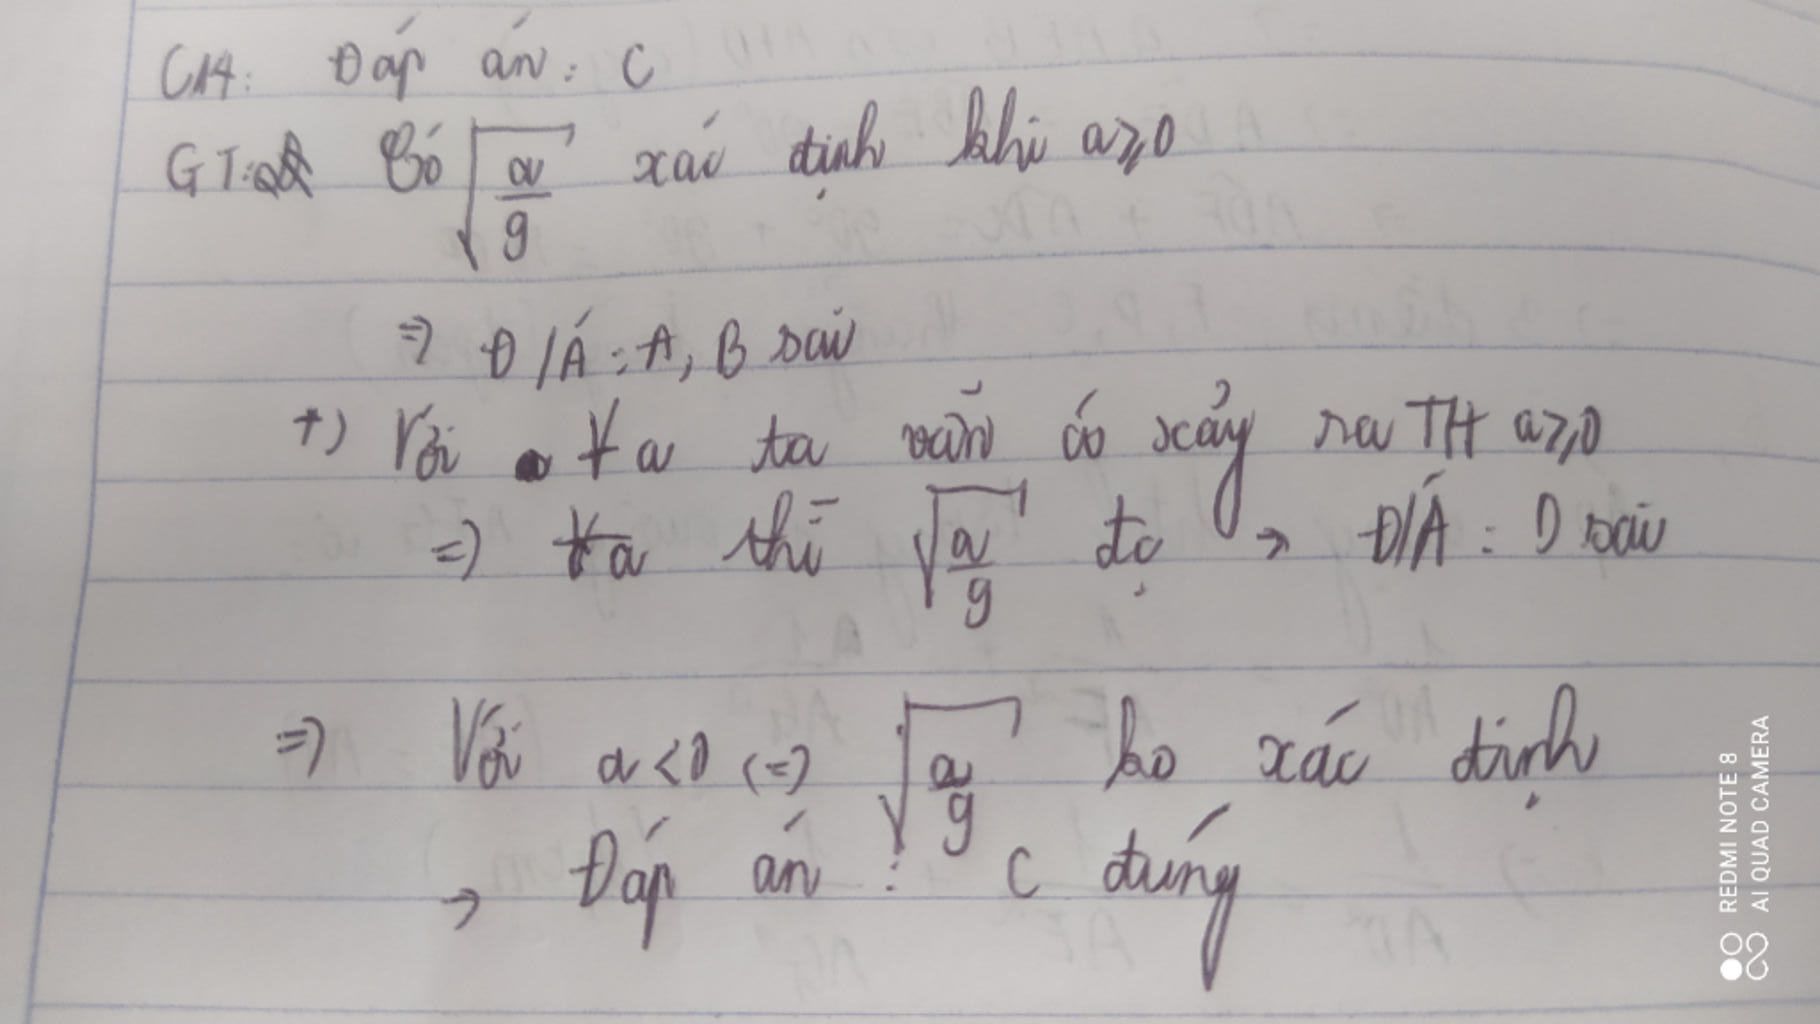 C14: Đáp án: C
GT: Có √(a/9) xác định khi a ⩾ 0
=> Đ/Á: A, B sai
+) Với ∀a ta vẫn có xảy ra TH a ⩾ 0
=> ∀a thì √(a/9) đc → Đ/Á: D sai
=> Với a < 0 (=) √(a/9) ko xác định
→ Đáp án: C đúng
REDMI NOTE 8
AI QUAD CAMERA